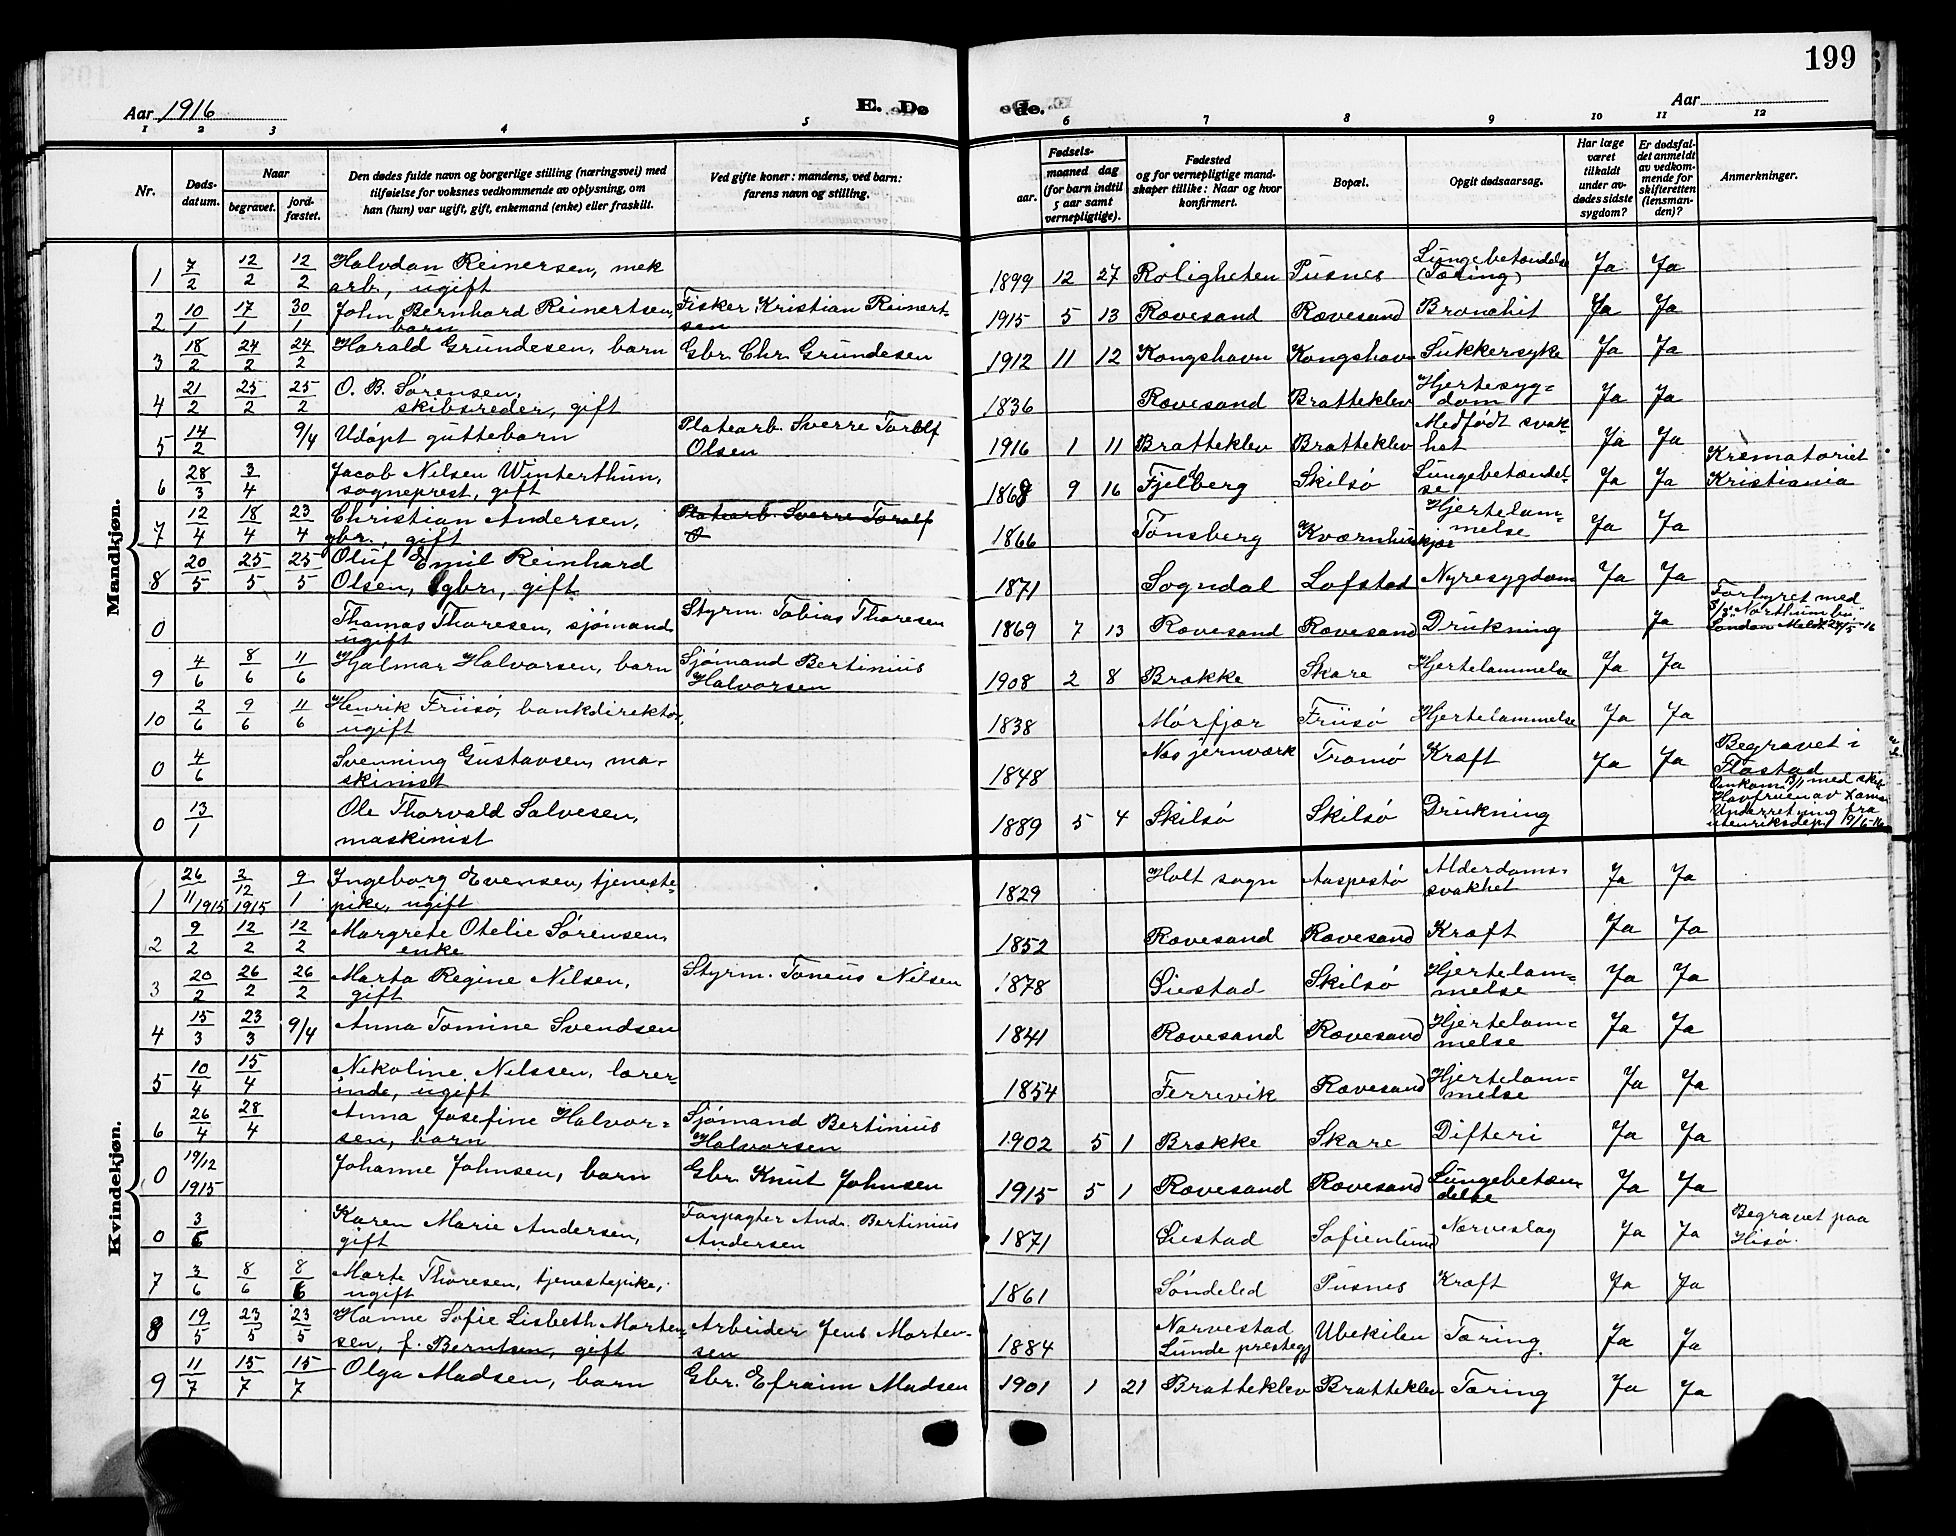 199
Aar 1916
E. Døde.
Aar
1 2 3 4 5 6 7 8 9 10 11 12
Nr.
Døds-datum.
Naar
begravet.
jord-fæstet.
Den dødes fulde navn og borgerlige stilling (næringsvei) med
tilføielse for voksnes vedkommende av oplysning, om
han (hun) var ugift, gift, enkemand (enke) eller fraskilt.
Ved gifte koner: mandens, ved barn:
farens navn og stilling.
Fødsels-
aar. maaned dag
(for barn indtil
5 aar samt
vernepligtige).
Fødested
og for vernepligtige mand-
skaper tillike: Naar og hvor
konfirmert.
Bopæl.
Opgit dødsaarsag.
Har læge
været
tilkaldt
under av-
dødes sidste
sygdom?
Er dødsfal-
det anmeldt
av vedkom-
mende for
skifteretten
(lensman-
den)?
Anmerkninger.
Mandkjøn.
1 7/2 12/2 12/2 Halvdan Reinersen, mek arb, ugift 1899 12 27 Roligheten Pusnes Lungebetændelse (Tæring) Ja Ja
2 10/1 17/1 30/1 John Bernhard Reinertsen, barn Fisker Kristian Reinertsen 1915 5 13 Rævesand Rævesand Bronchit Ja Ja
3 18/2 24/2 24/2 Harald Grundesen, barn Gbr. Chr. Grundesen 1912 11 12 Kongshavn Kongshavn Sukkersyke Ja Ja
4 21/2 25/2 25/2 O. B. Sørensen, skibsreder, gift 1836 Rævesand Bratteklev Hjertesyg=dom Ja Ja
5 14/2 9/4 Udøpt guttebarn Platearb. Sverre Toralf Olsen 1916 1 11 Bratteklev Bratteklev Medfødt svak=het Ja Ja
6 28/3 3/4 Jacob Nilsen Winterthun, sogneprest, gift 1868 9 16 Fjelberg Skilsø Lungebetændel=se Ja Ja Krematoriet Kristiania
7 12/4 18/4 23/4 Christian Andersen, gbr., gift Platearb. Sverre Toralf O 1866 Tønsberg Kværnhuskjær Hjertelam=melse Ja Ja
8 20/5 25/5 25/5 Oluf Emil Reinhard Olsen, gbr., gift 1871 Sogndal Lofstad Nyresygdom Ja Ja
0 Thomas Thoresen, sjømand ugift Styrm. Tobias Thoresen 1869 7 13 Rævesand Rævesand Drukning Ja Forhyret med S/S "Northumbria" London Meldt 24/5-16
9 4/6 8/6 11/6 Hjalmar Halvorsen, barn Sjømand Bertinius Halvorsen 1908 2 8 Brække Skare Hjertelammelse Ja Ja
10 2/6 9/6 11/6 Henrik Friisø, bankdirektør, ugift 1838 Mørfjær Friisø Hjertelammelse Ja Ja
0 4/6 Svenning Gustavsen, ma=skinist 1848 Næs jernværk Tromø Kræft Ja Ja Begravet i Flostad
0 13/1 Ole Thorvald Salvesen, maskinist 1889 5 4 Skilsø Skilsø Drukning Omkom 13/1 med skib Havfruen av Underretning fra utenriksdep. 19/6-16
Kvindekjøn.
1 26/11 1915 2/12 1915 9/1 Ingeborg Evensen, tjeneste=pike, ugift 1829 Holt sogn Aaspestø Alderdoms=svakhet Ja Ja
2 9/2 12/2 12/2 Margrete Otelie Sørensen, enke 1852 Rævesand Rævesand Kræft Ja Ja
3 20/2 26/2 26/2 Marta Regine Nilsen, gift Styrm. Toneus Nilsen 1878 Giestad Skilsø Hjertelam=melse Ja Ja
4 15/3 23/3 9/4 Anna Tomine Svendsen 1841 Rævesand Rævesand Hjertelam=melse Ja Ja
5 10/4 15/4 Nikoline Nilssen, lærer=inde, ugift 1854 Ferrevik Rævesand Hjertelam=melse Ja Ja
6 26/4 28/4 Anna Josefine Halvor=sen, barn Sjømand Bertinius Halvorsen 1902 5 1 Brække Skare Difteri Ja Ja
0 19/12 1915 Johanne Johnsen, barn Gbr. Knut Johnsen 1915 5 1 Rævesand Rævesand Lungebetæn=delse Ja Ja
0 3/5 Karen Marie Andersen, gift Forpagter Andr. Bertinius Andersen 1871 Giestad Sofienlund Nerveslag Ja Ja Begravet paa Hisø.
7 3/6 8/6 8/6 Marte Thoresen, tjenestepike, ugift 1861 Søndeled Pusnes Kræft Ja Ja
8 19/5 23/5 23/5 Hanne Sofie Lisbeth Morten=sen, f. Berntsen, gift Arbeider Jens Morten=sen 1884 Narvestad Lunde prestegj Ubekilen Tæring. Ja Ja
9 11/7 15/7 15/7 Olga Madsen, barn Gbr. Efraim Madsen 1901 1 21 Bratteklev Bratteklev Tæring Ja Ja